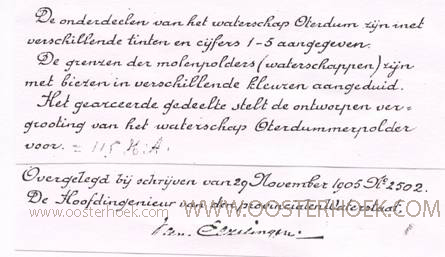 De onderdeelen van het waterschap Oterdum zijn met
verschillende tinten en cijfers 1-5 aangegeven.
De grenzen der molenpolders (waterschappen) zijn
met biezen in verschillende kleuren aangeduid.
Het gearceerde gedeelte stelt de ontworpen ver-
grooting van het waterschap Oterdummerpolder
voor. = 115 H.A.
Overgelegd bij schrijven van 29 November 1905 No 2502.
De Hoofdingenieur van den provincialen Waterstaat.
www.oosterhoek.com
WWW.OOSTERHOEK.COM
van